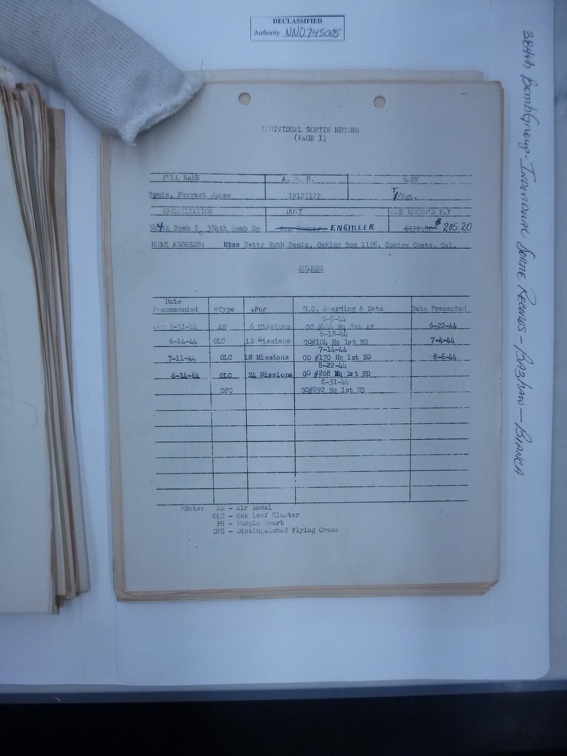 DECLASSIFIED
Authority NND745005
384th Bomb Group - Individual Sortie Records - Bashaw - Bianca
INDIVIDUAL SORTIE RECORD
(PAGE I)
FULL NAME A. S. N.
Bemis, Forrest James 19127172 T/Sgt.
ORGANIZATION DUTY ONE MONTH'S PAY
544th Bomb Sq 384th Bomb Gp ENGINEER $ 205.20
HOME ADDRESS: Miss Betty Ruth Bemis, Oakley Box 1105, Contra Costa, Cal.
AWARDS
Date Recommended *Type *For G.O. Awarding & Date Date Presented
6-5-44
5-31-44 AM 6 Missions Hq 8th AF 6-22-44
6-18-44
6-14-44 OLC 12 Missions GO#104 Hq 1st BD 7-4-44
7-14-44
7-11-44 OLC 18 Missions GO #170 Hq 1st BD 8-6-44
8-22-44
8-14-44 OLC 24 Missions GO #268 Hq 1st BD
8-31-44
DFC GO#292 Hq 1st BD
*Note: AM - Air Medal
OLC - Oak Leaf Cluster
PH - Purple Heart
DFC - Distinguished Flying Cross